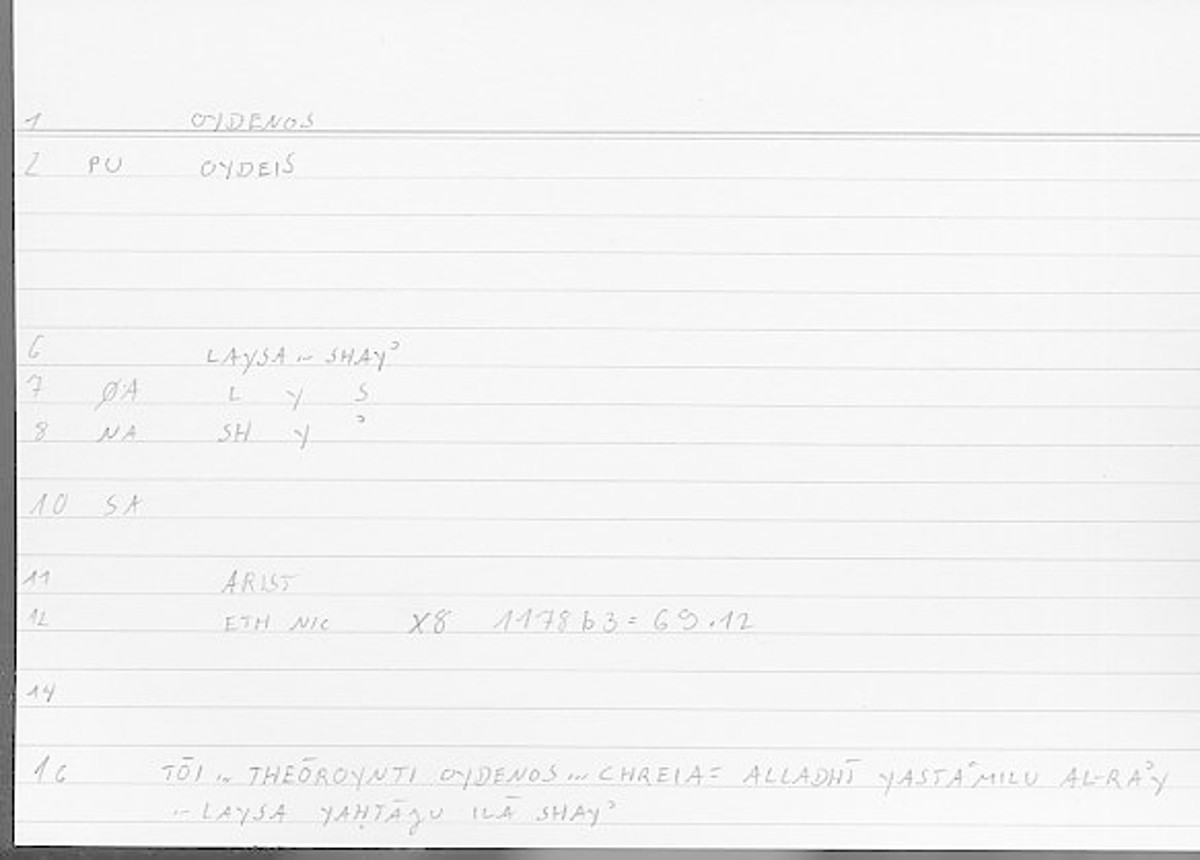 1 OYDENOS
2 PU OYDEIS
6 LAYSA .. SHAYʾ
7 ØA L Y S
8 NA SH Y ʾ
10 SA
11 ARIST
12 ETH NIC X8 1178 b 3 = 69.12
14
16 TŌI .. THEŌROYNTI OYDENOS ... CHREIA = ALLADHĪ YASTAʿMILU AL-RAʾY
.. LAYSA YAḤTĀǧU ILĀ SHAYʾ